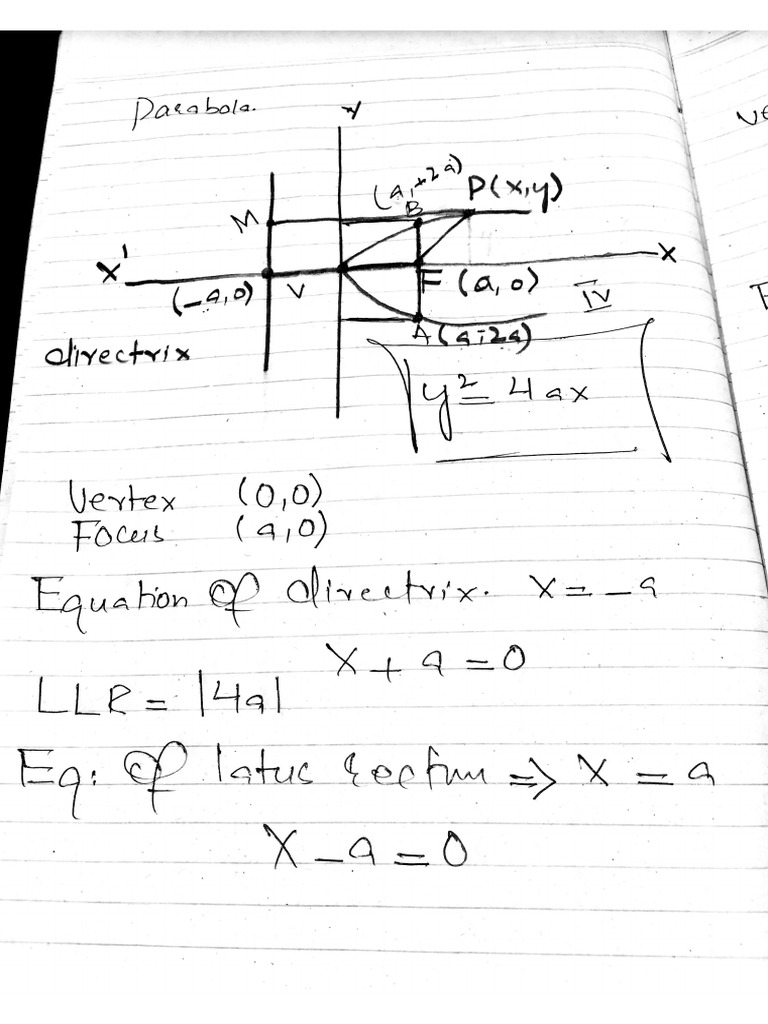 Parabola.
y
(a,+2a)
P(x,y)
M
B
X'
X
(-a,0)
V
F (a,0)
IV
A(a-2a)
directrix
y² = 4ax
Vertex (0,0)
Focus (a,0)
Equation of directrix. x = -a
x + a = 0
LLR = |4a|
Eq: of latus rectum => x = a
x - a = 0